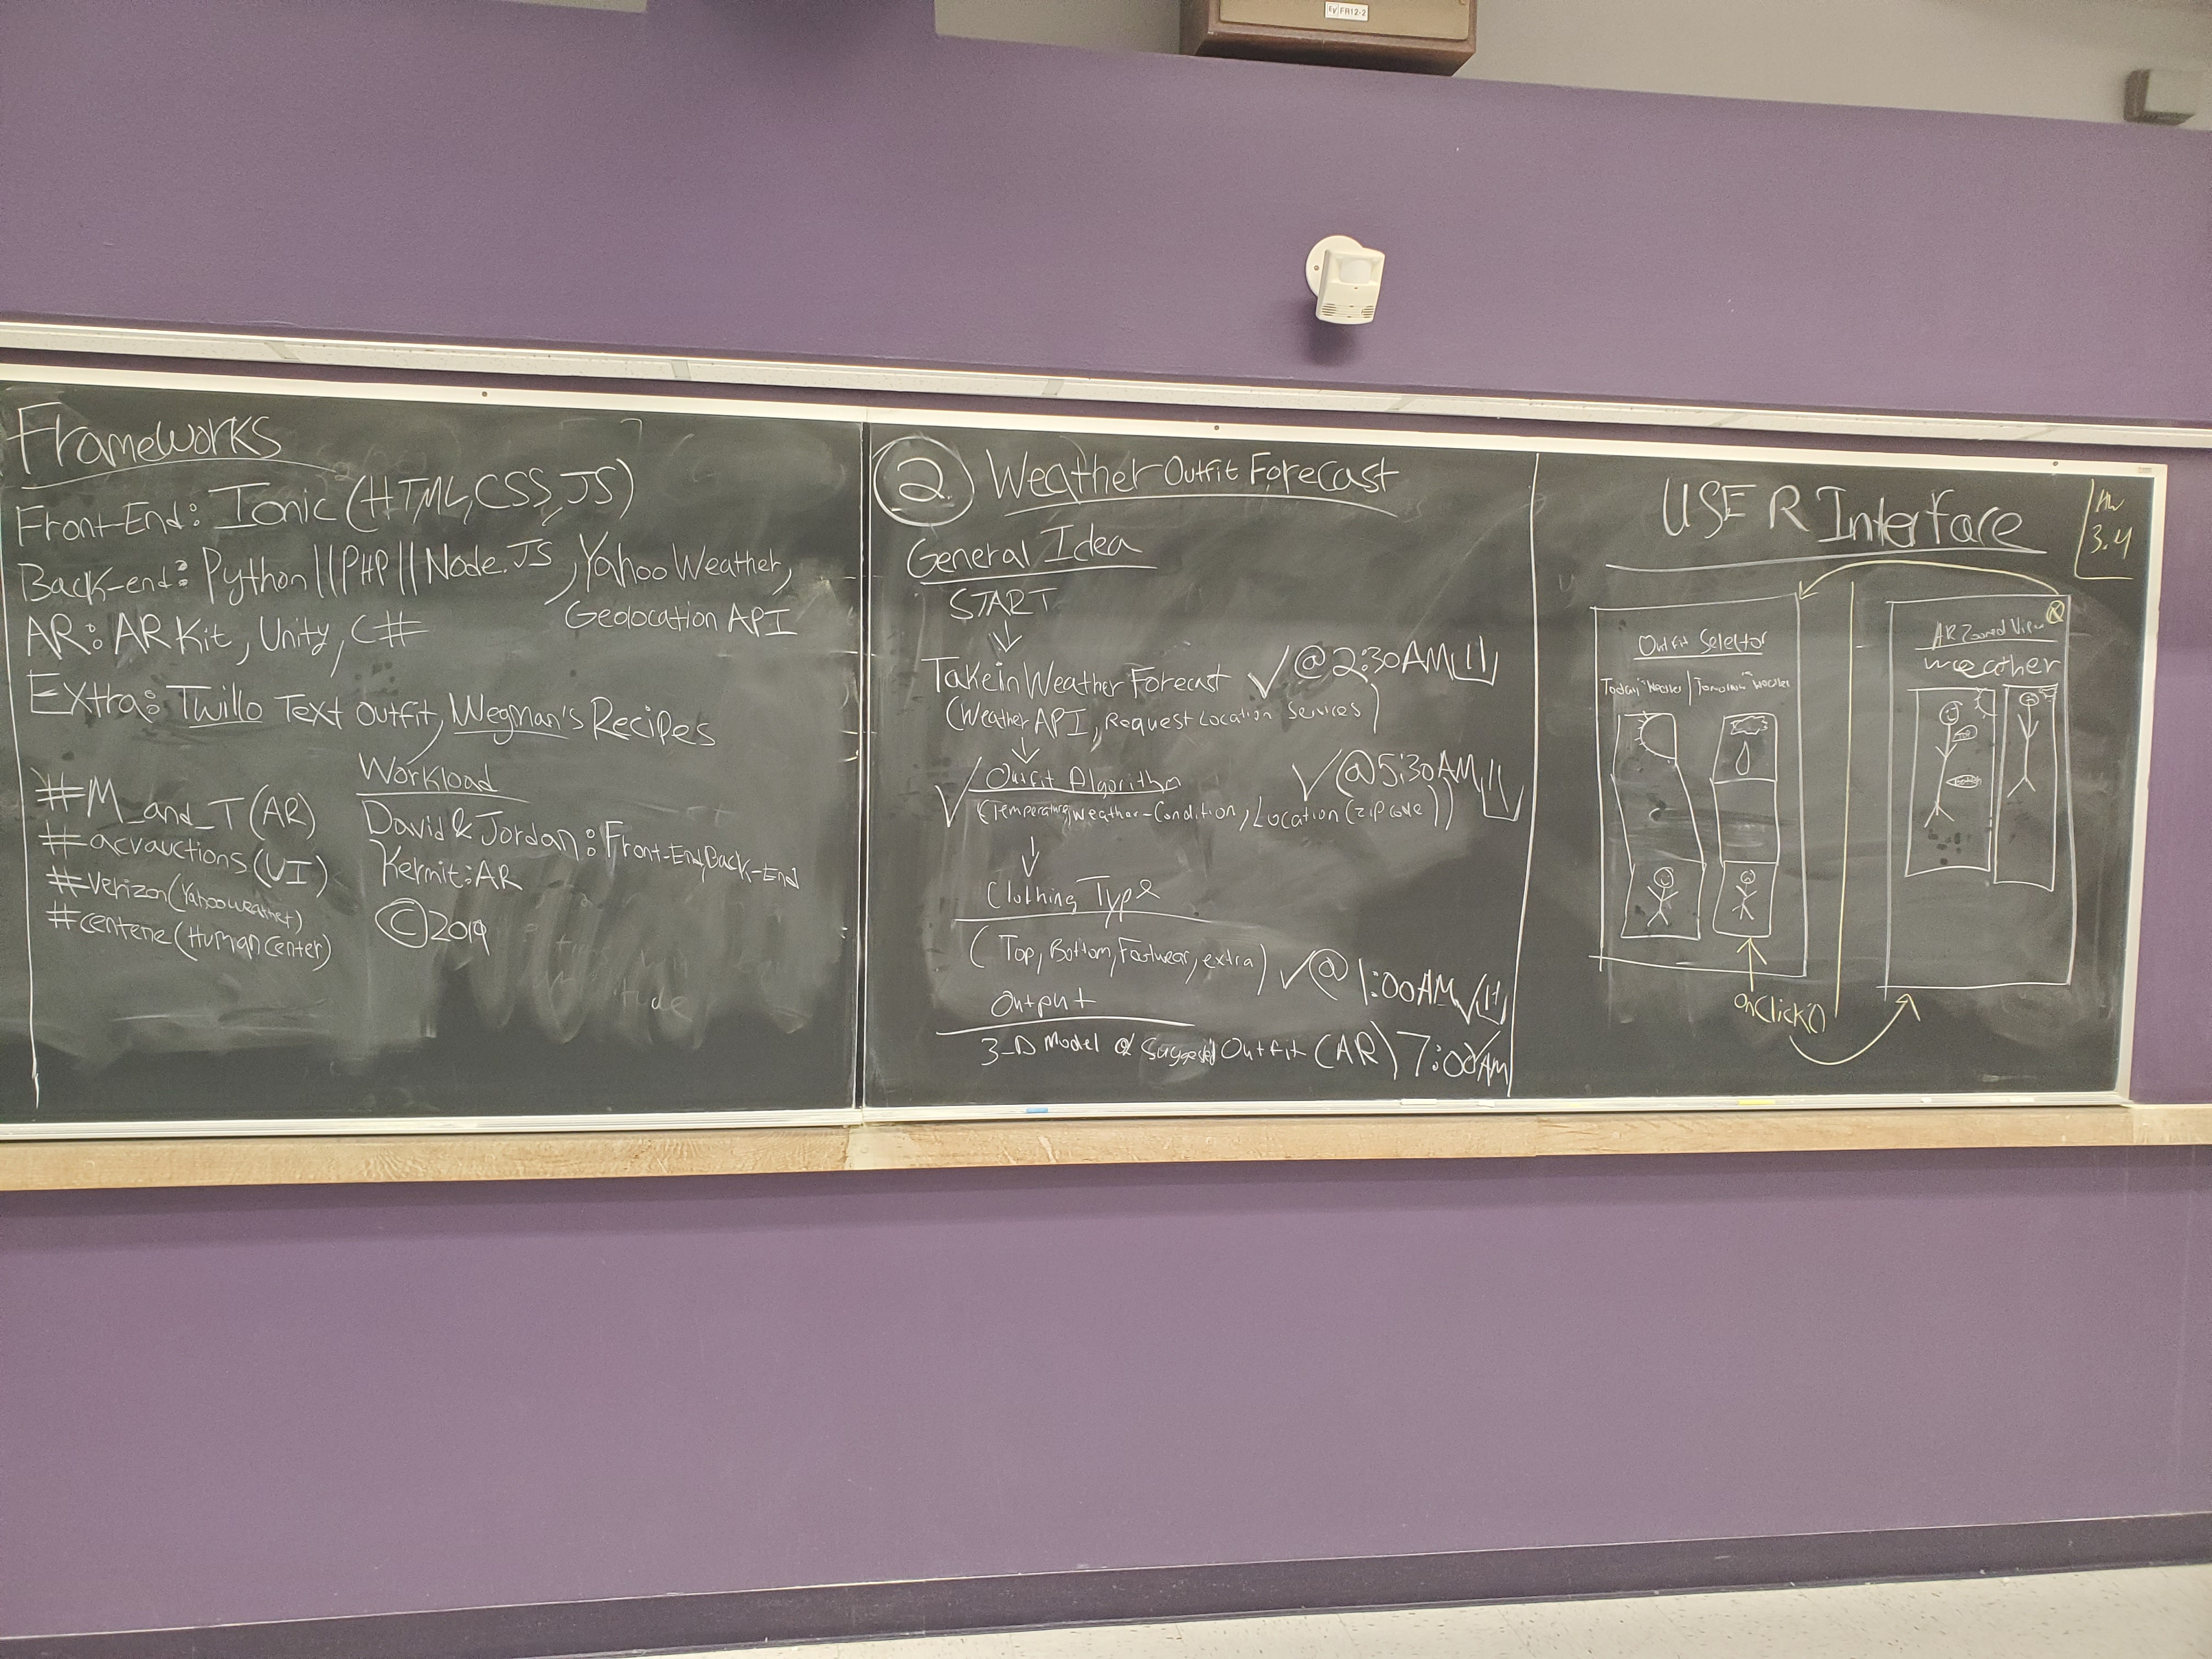 Ey FR12-2
Frameworks
Front-End: Ionic (HTML, CSS, JS)
Back-end: Python || PHP || Node.JS, Yahoo Weather,
Geolocation API
AR: AR Kit, Unity, C#
Extra: Twillo Text Outfit, Wegman's Recipes
#M_and_T (AR)
#acvauctions (UI)
#verizon (Yahoo weather)
#centene (Human Center)
Workload
David & Jordan: Front-End, Back-End
Kermit: AR
© 2019
2. Weather Outfit Forecast
General Idea
START
↓
Take in Weather Forecast ✓ @ 2:30 AM
(Weather API, Request Location Services)
↓
✓ Outfit Algorithm ✓ @ 5:30 AM
(Temperature, Weather-Condition, Location (zip code))
↓
Clothing Type
(Top, Bottom, Footwear, extra) ✓ @ 1:00 AM ✓
Output
3-D Model of Suggested Outfit (AR) 7:00 AM
USER Interface
HW
3.4
Outfit Selector
Today Weather | Weather
onClick()
AR Zoomed View X
weather